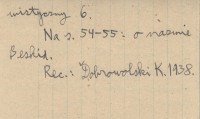 mistyczny 6.
Na s. 54-55: o nazwie
Beskid.
Rec.: Dobrowolski K. 1938.